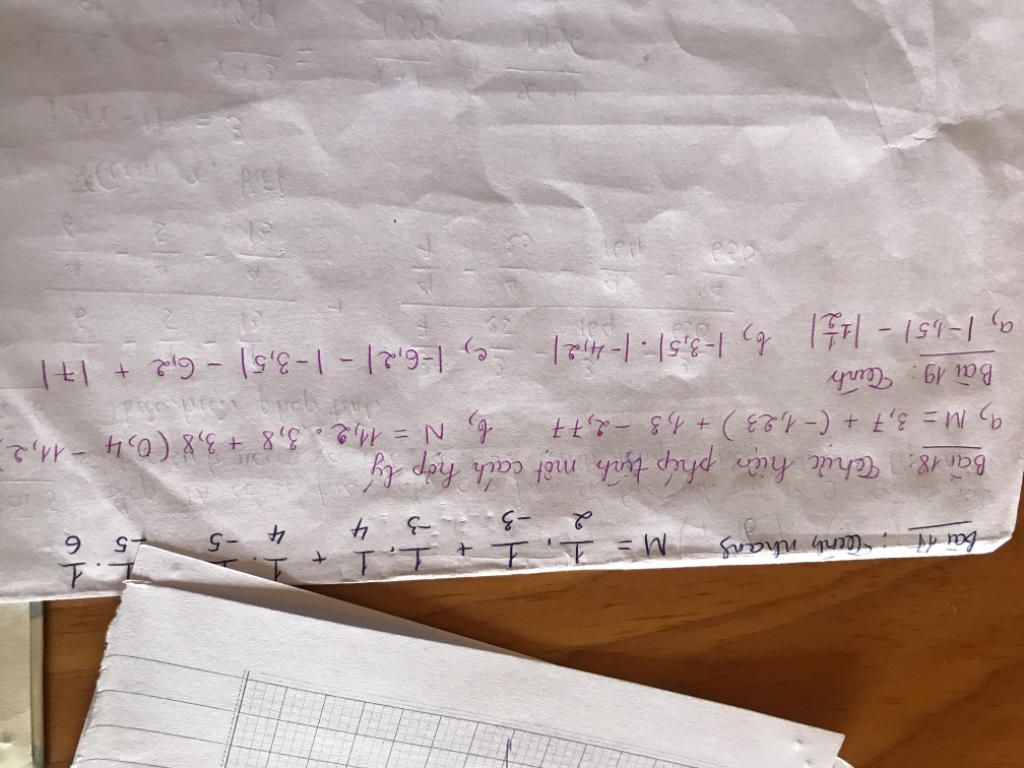 Bài 17: Tính nhanh M = 1/2 . 1/-3 + 1/-3 . 1/4 + 1/4 . 1/-5 + 1/-5 . 1/6
Bài 18: Thực hiện phép tính một cách hợp lý
a, M = 3,7 + (-1,23) + 1,3 - 2,77 b, N = 11,2 . 3,8 + 3,8 (0,4 - 11,2
Bài 19: Tính
a, |-1,5| - |1 1/2| b, |-3,5| . |-4,2| c, |-6,2| - |-3,5| - 6,2 + |7|